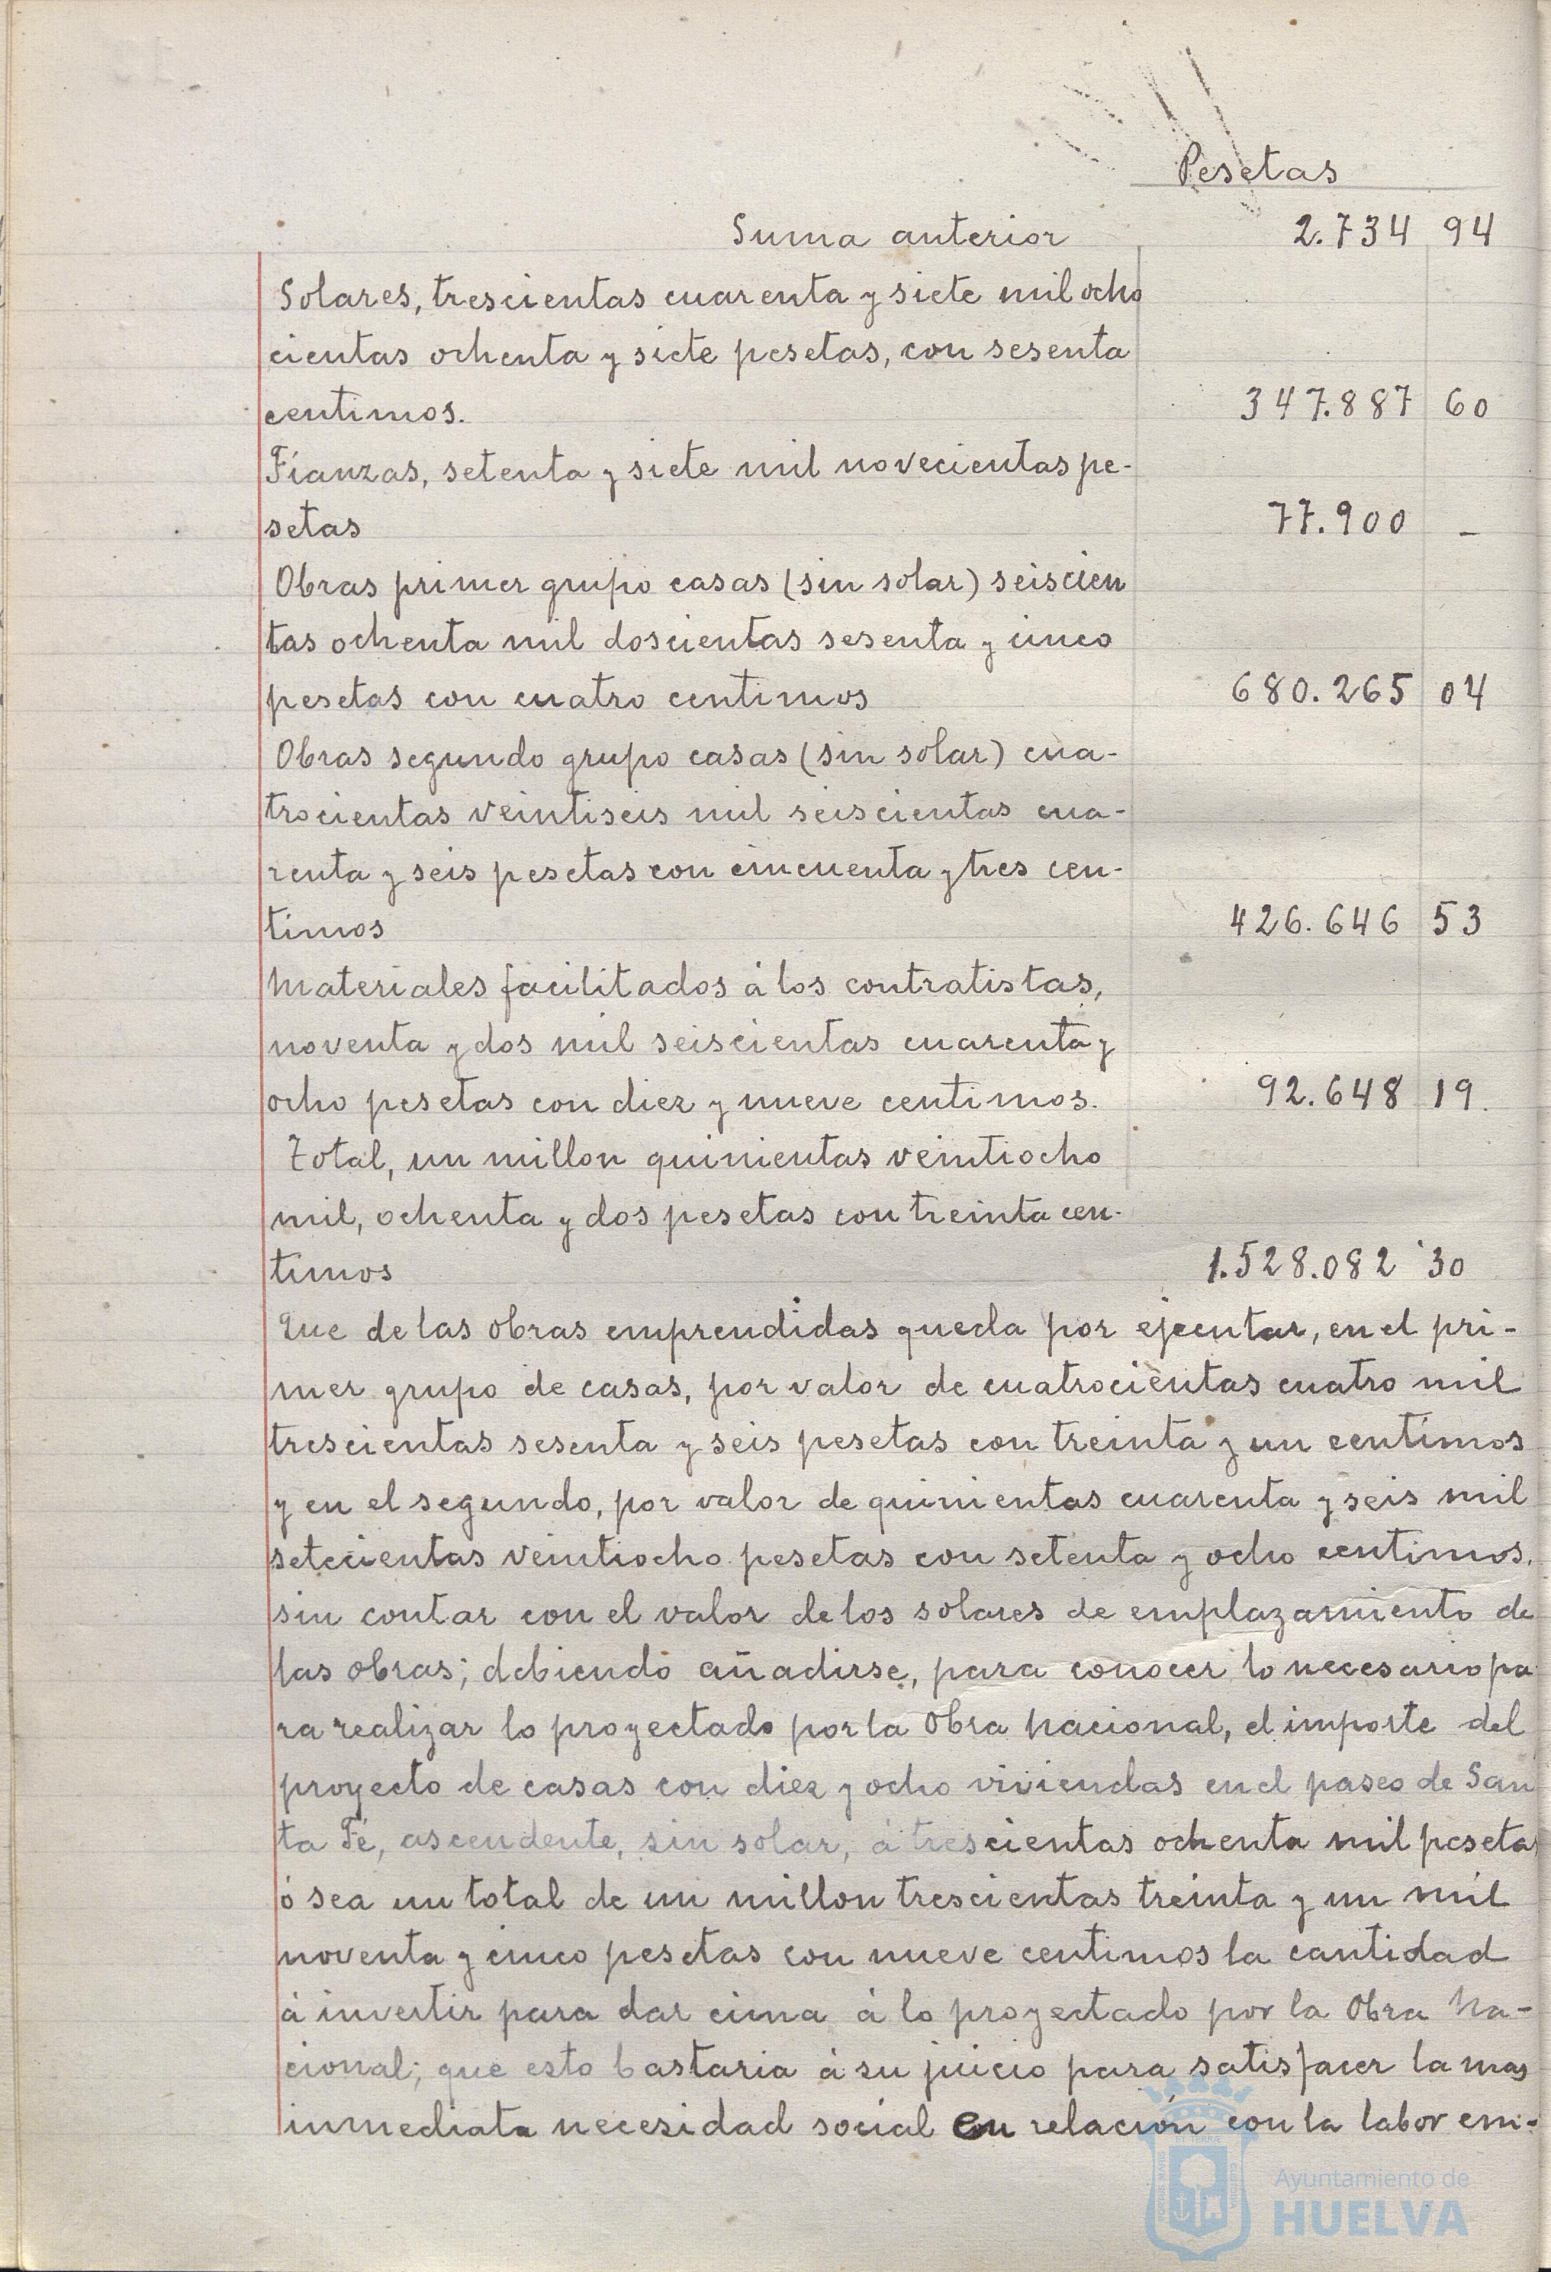 Pesetas
Suma anterior 2.734 94
Solares, trescientas cuarenta y siete mil ocho
cientas ochenta y siete pesetas, con sesenta
centimos. 347.887 60
Fianzas, setenta y siete mil novecientas pe-
setas 77.900 –
Obras primer grupo casas (sin solar) seiscien
tas ochenta mil doscientas sesenta y cinco
pesetas con cuatro centimos 680.265 04
Obras segundo grupo casas (sin solar) cua-
trocientas veintiseis mil seiscientas cua-
renta y seis pesetas con cincuenta y tres cen-
timos 426.646 53
Materiales facilitados á los contratistas,
noventa y dos mil seiscientas cuarenta y
ocho pesetas con diez y nueve centimos. 92.648 19.
Total, un millon quinientas veintiocho
mil, ochenta y dos pesetas con treinta cen-
timos 1.528.082 '30
Que de las obras emprendidas queda por ejecutar, en el pri-
mer grupo de casas, por valor de cuatrocientas cuatro mil
trescientas sesenta y seis pesetas con treinta y un centimos
y en el segundo, por valor de quinientas cuarenta y seis mil
setecientas veintiocho pesetas con setenta y ocho centimos,
sin contar con el valor de los solares de emplazamiento de
las obras; debiendo añadirse, para conocer lo necesario pa
ra realizar lo proyectado por la Obra Nacional, el importe del
proyecto de casas con diez y ocho viviendas en el paseo de San
ta Fé, ascendente, sin solar, á trescientas ochenta mil pesetas
ó sea un total de un millon trescientas treinta y un mil
noventa y cinco pesetas con nueve centimos la cantidad
á invertir para dar cima á lo proyectado por la Obra Na-
cional; que esto bastaria á su juicio para satisfacer la mas
inmediata necesidad social en relación con la labor em-
Ayuntamiento de
HUELVA